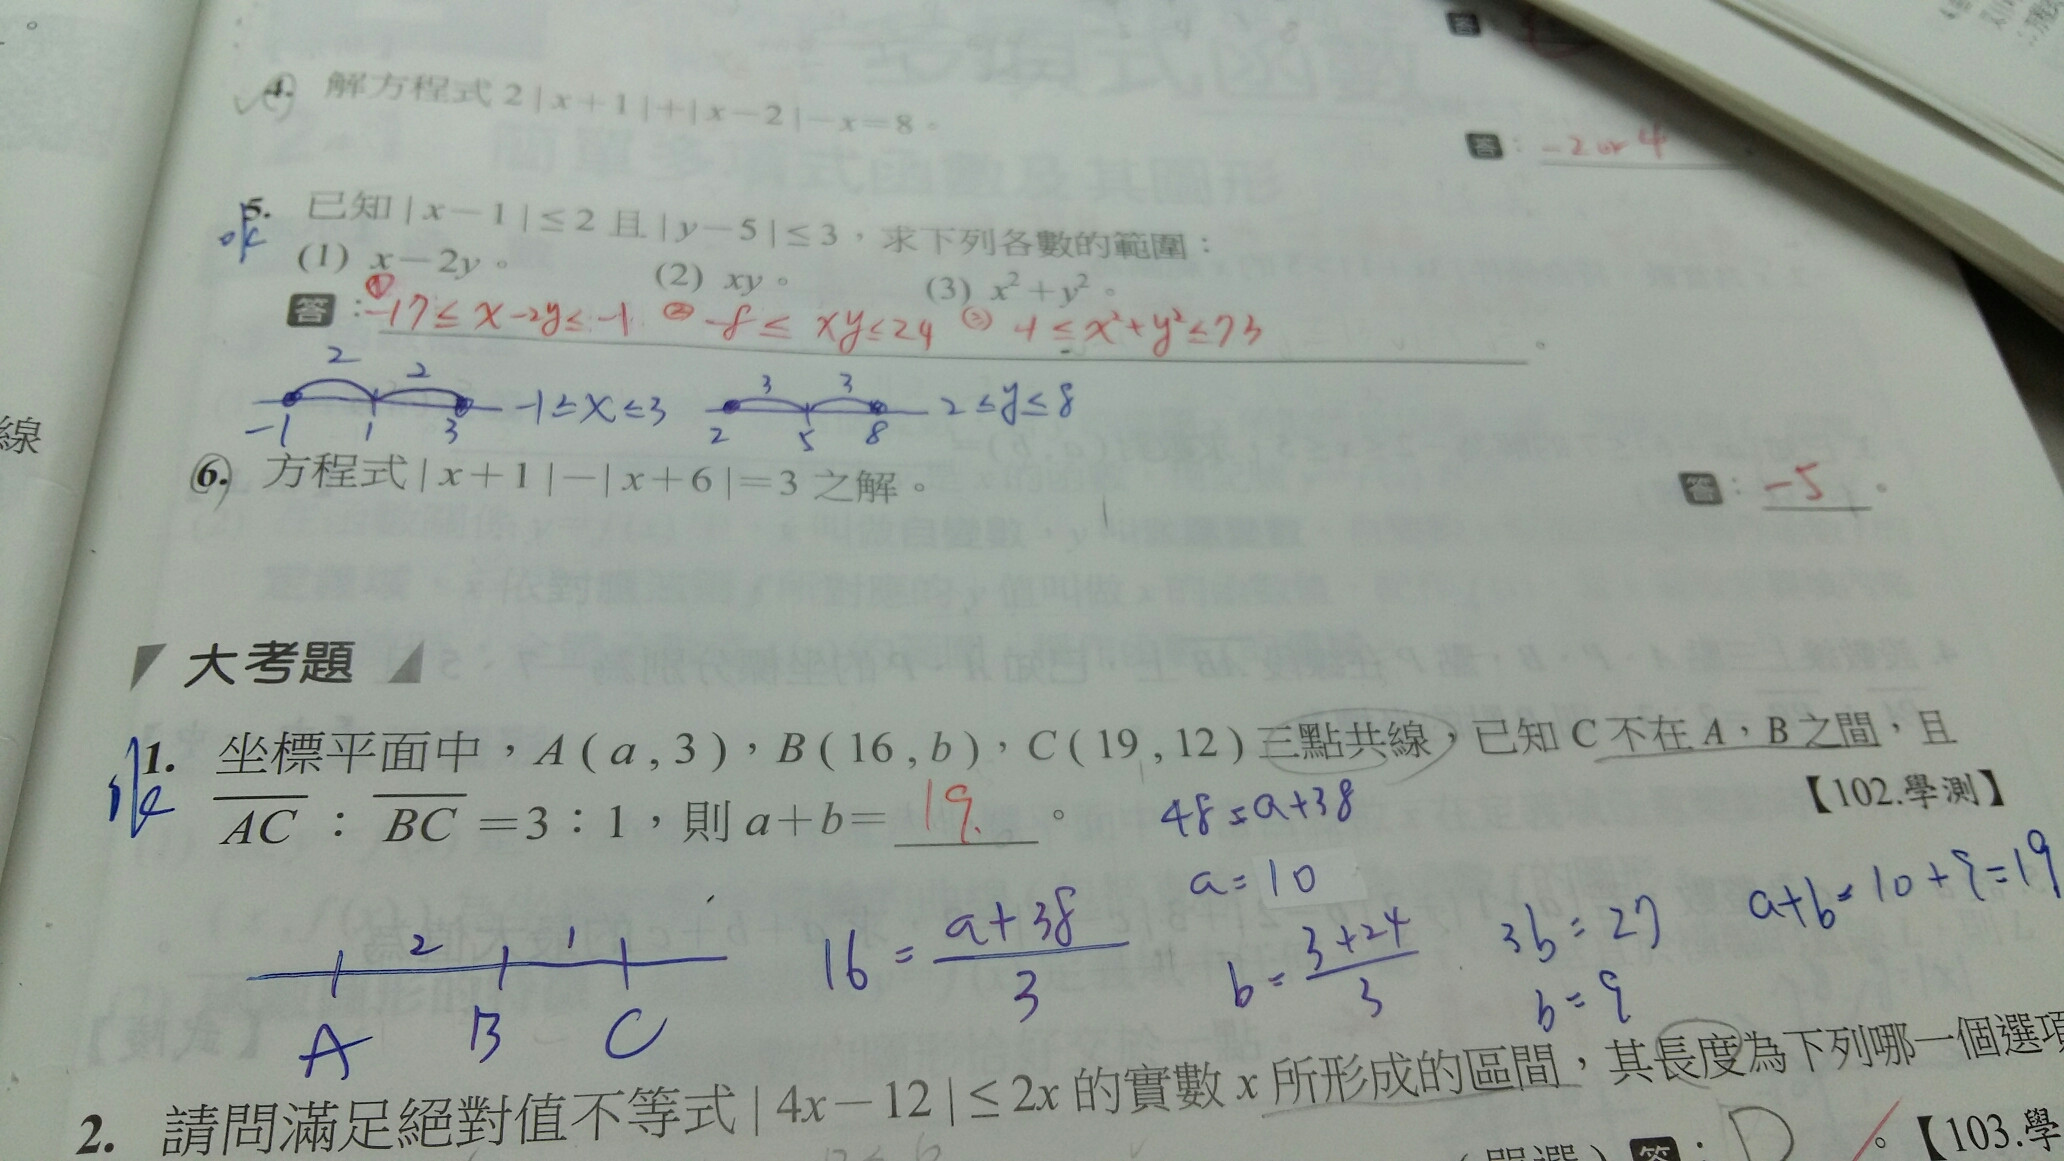 4. 解方程式 2|x+1|+|x-2|-x=8。
答：-2 or 4
5. 已知|x-1|≤2 且|y-5|≤3，求下列各數的範圍：
(1) x-2y。 (2) xy。 (3) x²+y²。
答：① -17≤x-2y≤-1 ② -8≤xy≤24 ③ 4≤x²+y²≤73。
2 2 3 3
-1 1 3 -1≤x≤3 2 5 8 2≤y≤8
6. 方程式|x+1|-|x+6|=3 之解。 答：-5。
大考題
1. 坐標平面中，A(a,3)，B(16,b)，C(19,12)三點共線，已知C不在A，B之間，且
AC：BC=3：1，則a+b=19。 【102.學測】
48=a+38
a=10
2 1
A B C
16=(a+38)/3
b=(3+24)/3
3b=27
b=9
a+b=10+9=19
2. 請問滿足絕對值不等式|4x-12|≤2x的實數x所形成的區間，其長度為下列哪一個選項
答：D。【103.學
線